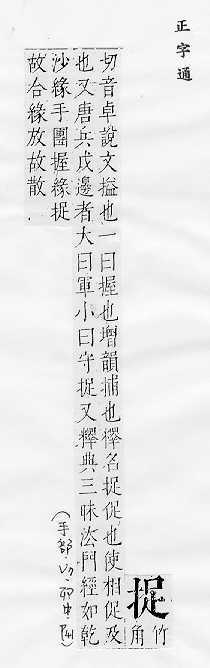 正字通
捉
竹
角
切音卓說文搤也一曰握也增韻捕也釋名捉促也使相促及
也又唐兵戍邊者大曰軍小曰守捉又釋典三昧法門經如乾
沙緣手團握緣捉
故合緣放故散.
(手部